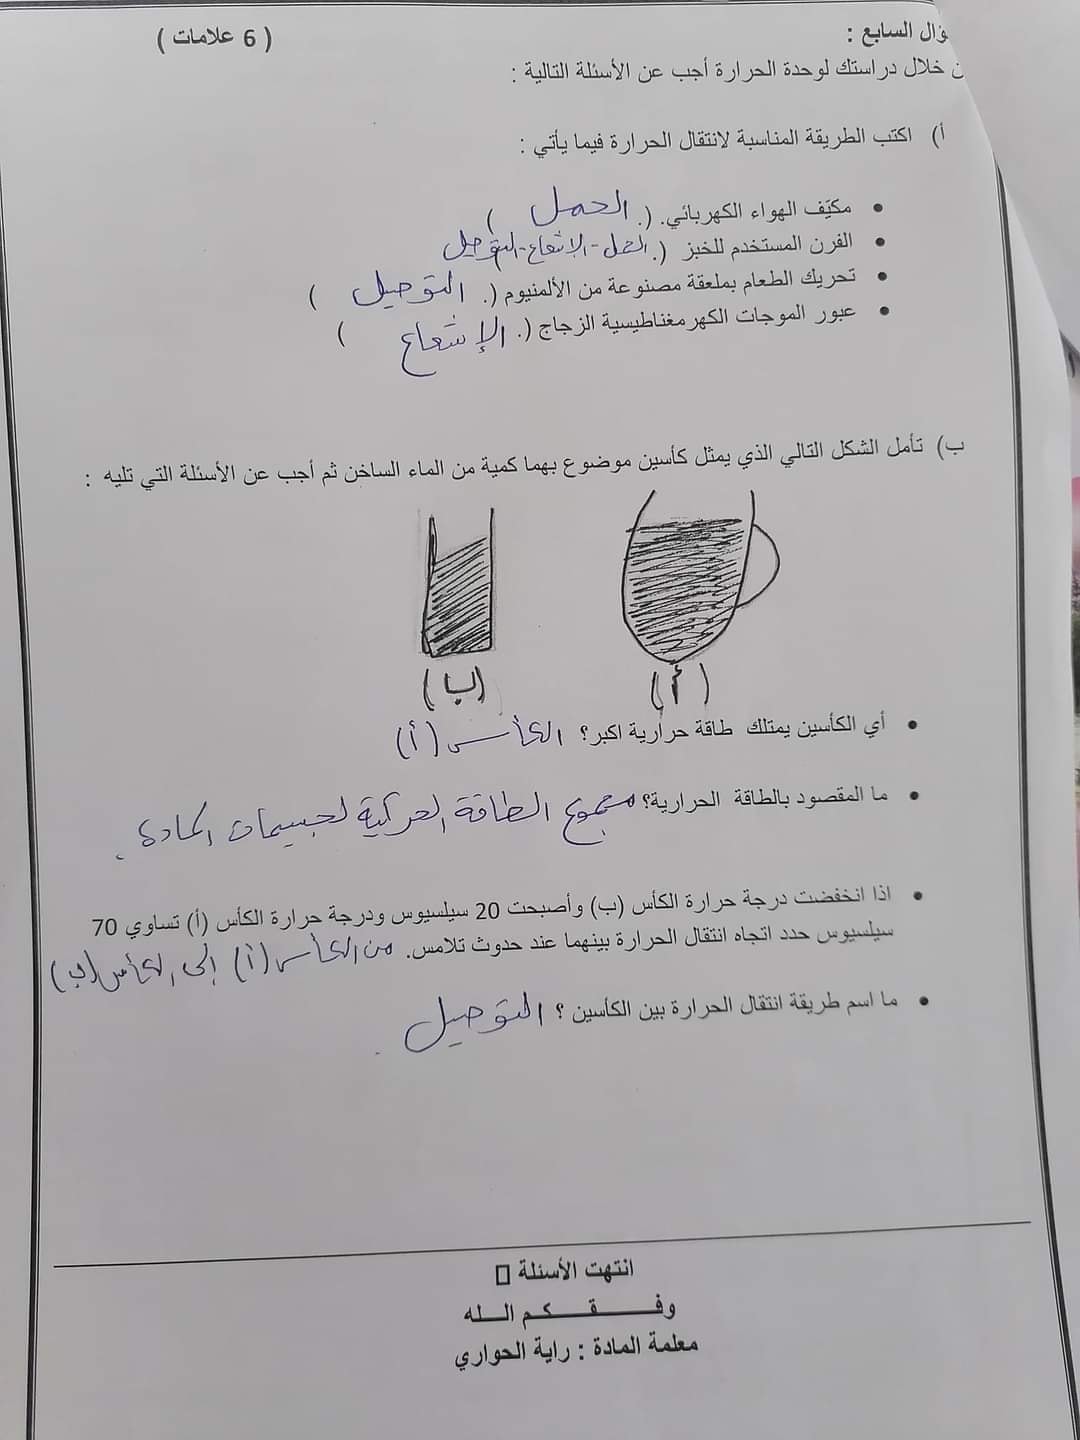 ؤال السابع : ( 6 علامات )
ن خلال دراستك لوحدة الحرارة أجب عن الأسئلة التالية :
أ) اكتب الطريقة المناسبة لانتقال الحرارة فيما يأتي :
• مكيّف الهواء الكهربائي. (. الحمل )
• الفرن المستخدم للخبز (. الحمل - الإشعاع - التوصيل
• تحريك الطعام بملعقة مصنوعة من الألمنيوم (. التوصيل )
• عبور الموجات الكهرمغناطيسية الزجاج (. الإشعاع )
ب) تأمل الشكل التالي الذي يمثل كأسين موضوع بهما كمية من الماء الساخن ثم أجب عن الأسئلة التي تليه :
(أ) (ب)
• أي الكأسين يمتلك طاقة حرارية اكبر؟ الكأس (أ)
• ما المقصود بالطاقة الحرارية؟ مجموع الطاقة الحركية لجسيمات المادة .
• اذا انخفضت درجة حرارة الكأس (ب) وأصبحت 20 سيلسيوس ودرجة حرارة الكأس (أ) تساوي 70
سيلسيوس حدد اتجاه انتقال الحرارة بينهما عند حدوث تلامس. من الكأس (أ) إلى الكأس (ب)
• ما اسم طريقة انتقال الحرارة بين الكأسين ؟ التوصيل .
انتهت الأسئلة
وفـــــقـــــكـــم الـــلـه
معلمة المادة : راية الحواري